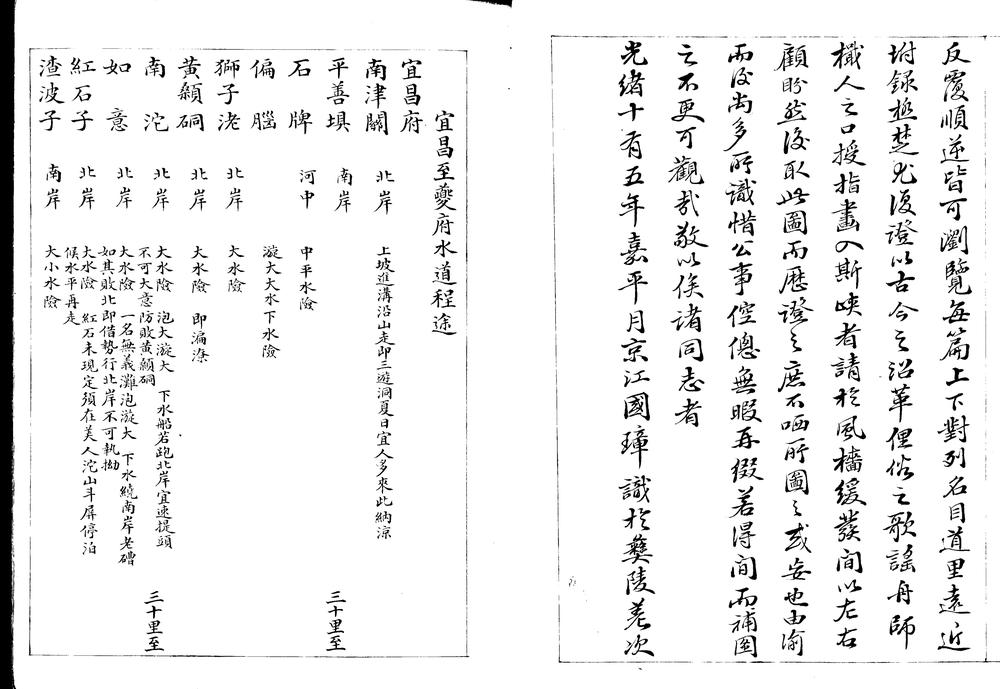 反覆順逆皆可瀏覽每篇上下對列名目道里遠近
坿錄極楚尤復證以古今之沿革俚俗之歌謠舟師
檥人之口授指畫入斯峽者請於風檣緩發間以左右
顧盼然後取此圖而歷證之庶不哂所圖之或妄也由渝
而後尚多所識惜公事倥傯無暇再綴若得間而補圖
之不更可觀哉敬以俟諸同志者
光緒十有五年嘉平月京江國璋識於夷陵差次
宜昌至夔府水道程途
宜昌府
南津關 北岸 上坡進溝沿山走即三遊洞夏日宜人多來此納涼
平善埧 南岸 三十里至
石牌 河中 中平水險
偏腦 漩大大水下水險
獅子沱 北岸 大水險
黃顙硐 北岸 大水險 即漏漈
南沱 北岸 大水險 泡大漩大 下水船若跑北岸宜速提頭
不可大意防敗黃顙硐 三十里至
如意 北岸 大水險 一名無義灘泡漩大 下水繞南岸老磳
如其敗北即借勢行北岸不可執拗
紅石子 北岸 大水險 紅石未現定須在美人沱山斗屏停泊
候水平再走
渣波子 南岸 大小水險